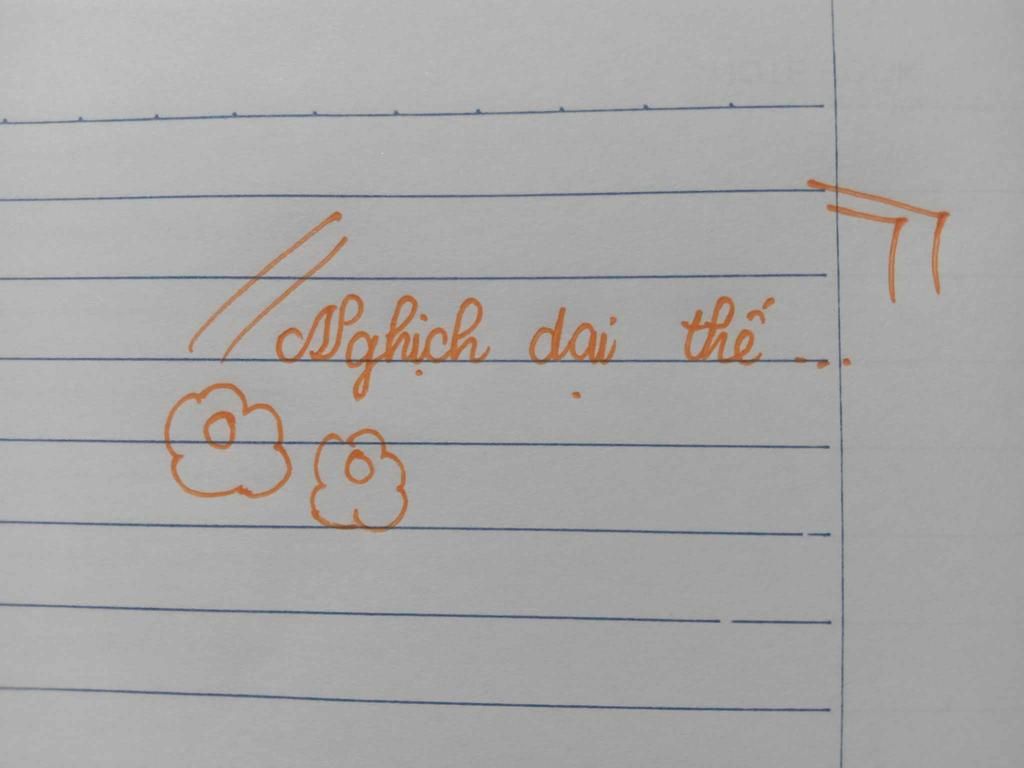 Nghịch dại thế ...